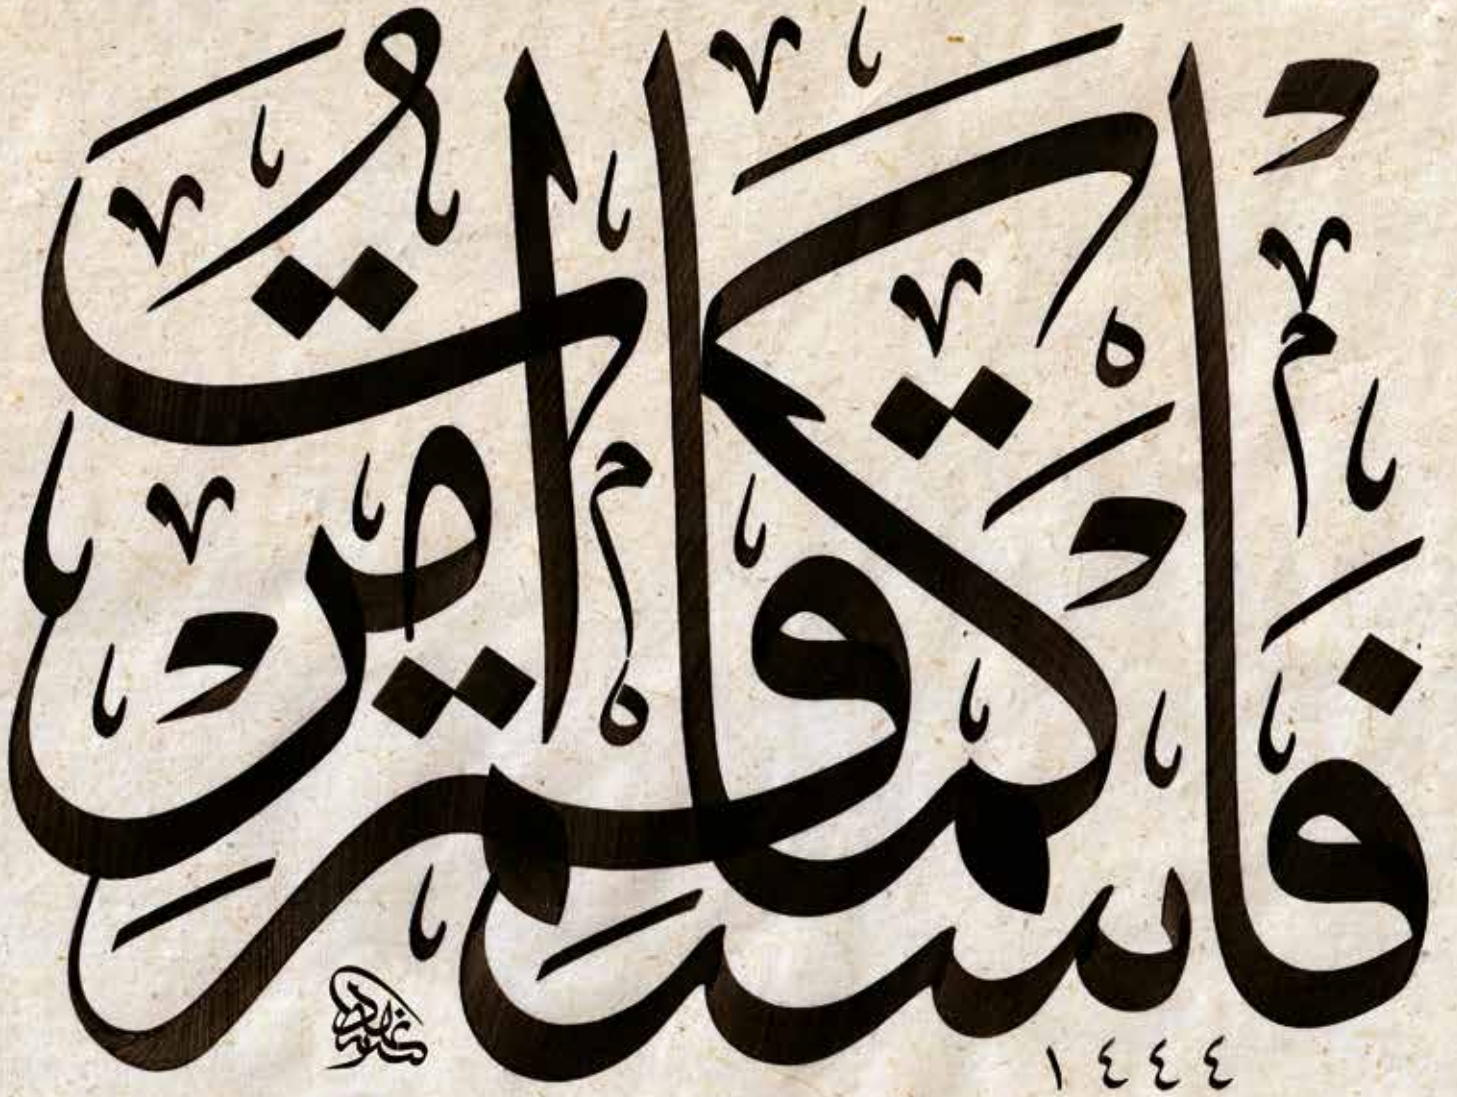 فَاسْتَقِمْ كَمَا أُمِرْتَ
١٤٤٤